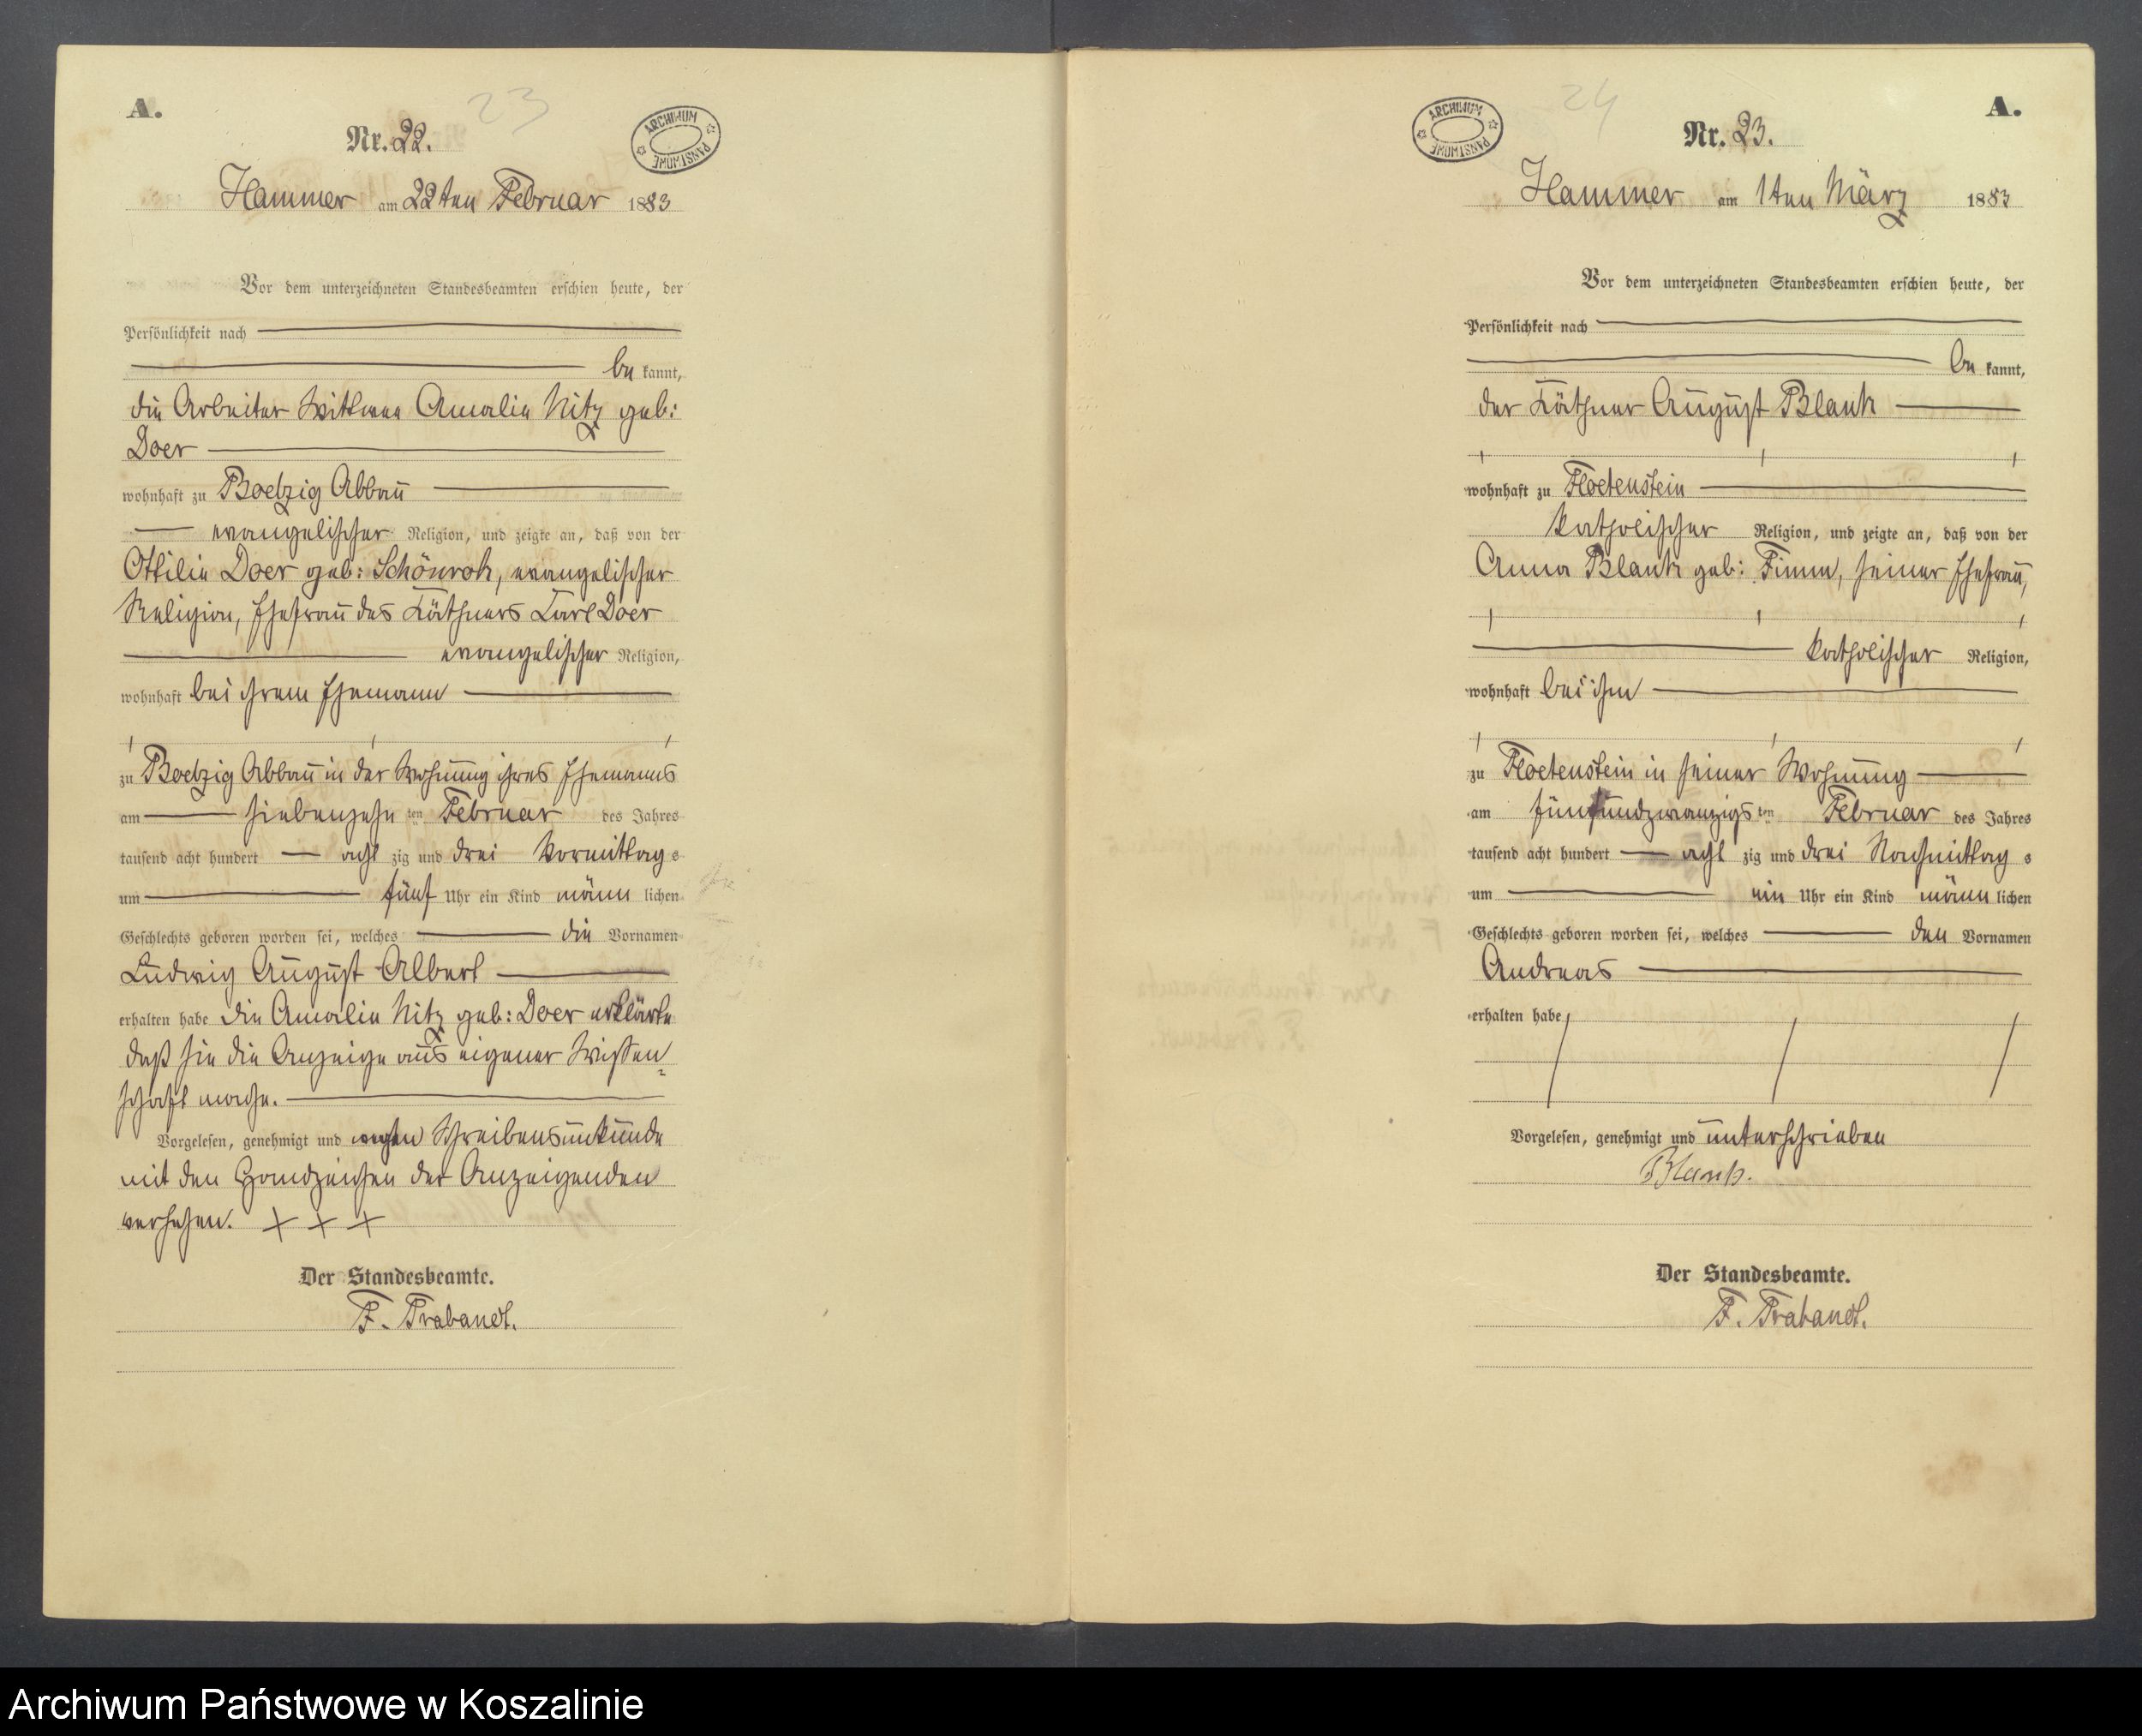 A.
23
Nr. 22.
ARCHIWUM PAŃSTWOWE
Hammer am 22ten Februar 1883
Vor dem unterzeichneten Standesbeamten erschien heute, der
Persönlichkeit nach
be kannt,
die Arbeiter Wittwe Amalie Nitz geb:
Doer
wohnhaft zu Boetzig Abbau
evangelischer Religion, und zeigte an, daß von der
Ottilie Doer geb: Schönrok, evangelischer
Religion, Ehefrau des Käthners Carl Doer
evangelischer Religion,
wohnhaft bei ihrem Ehemann
zu Boetzig Abbau in der Wohnung ihres Ehemanns
am siebenzehn ten Februar des Jahres
tausend acht hundert acht zig und drei Vormittag s
um fünf Uhr ein Kind männ lichen
Geschlechts geboren worden sei, welches die Vornamen
Ludwig August Albert
erhalten habe die Amalie Nitz geb: Doer erklärte
daß sie die Anzeige aus eigener Wissen=
schaft mache.
Vorgelesen, genehmigt und wegen Schreibensunkunde
mit den Handzeichen der Anzeigenden
versehen. + + +
Der Standesbeamte.
F. Trabandt.
24
A.
ARCHIWUM PAŃSTWOWE
Nr. 23.
Hammer am 1ten März 1883
Vor dem unterzeichneten Standesbeamten erschien heute, der
Persönlichkeit nach
be kannt,
der Käthner August Blank
wohnhaft zu Floetenstein
katholischer Religion, und zeigte an, daß von der
Anna Blank geb: Fimm, seiner Ehefrau,
katholischer Religion,
wohnhaft bei ihm
zu Floetenstein in seiner Wohnung
am fünfundzwanzigs ten Februar des Jahres
tausend acht hundert acht zig und drei Nachmittag s
um ein Uhr ein Kind männ lichen
Geschlechts geboren worden sei, welches den Vornamen
Andreas
erhalten habe
Vorgelesen, genehmigt und unterschrieben
Blank.
Der Standesbeamte.
F. Trabandt.
Archiwum Państwowe w Koszalinie